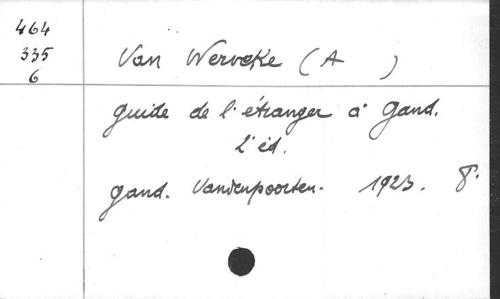 464
335
6
Van Werveke (A )
Guide de l'étranger à Gand.
2e éd.
Gand. Vandenpoorten. 1923. 8°.